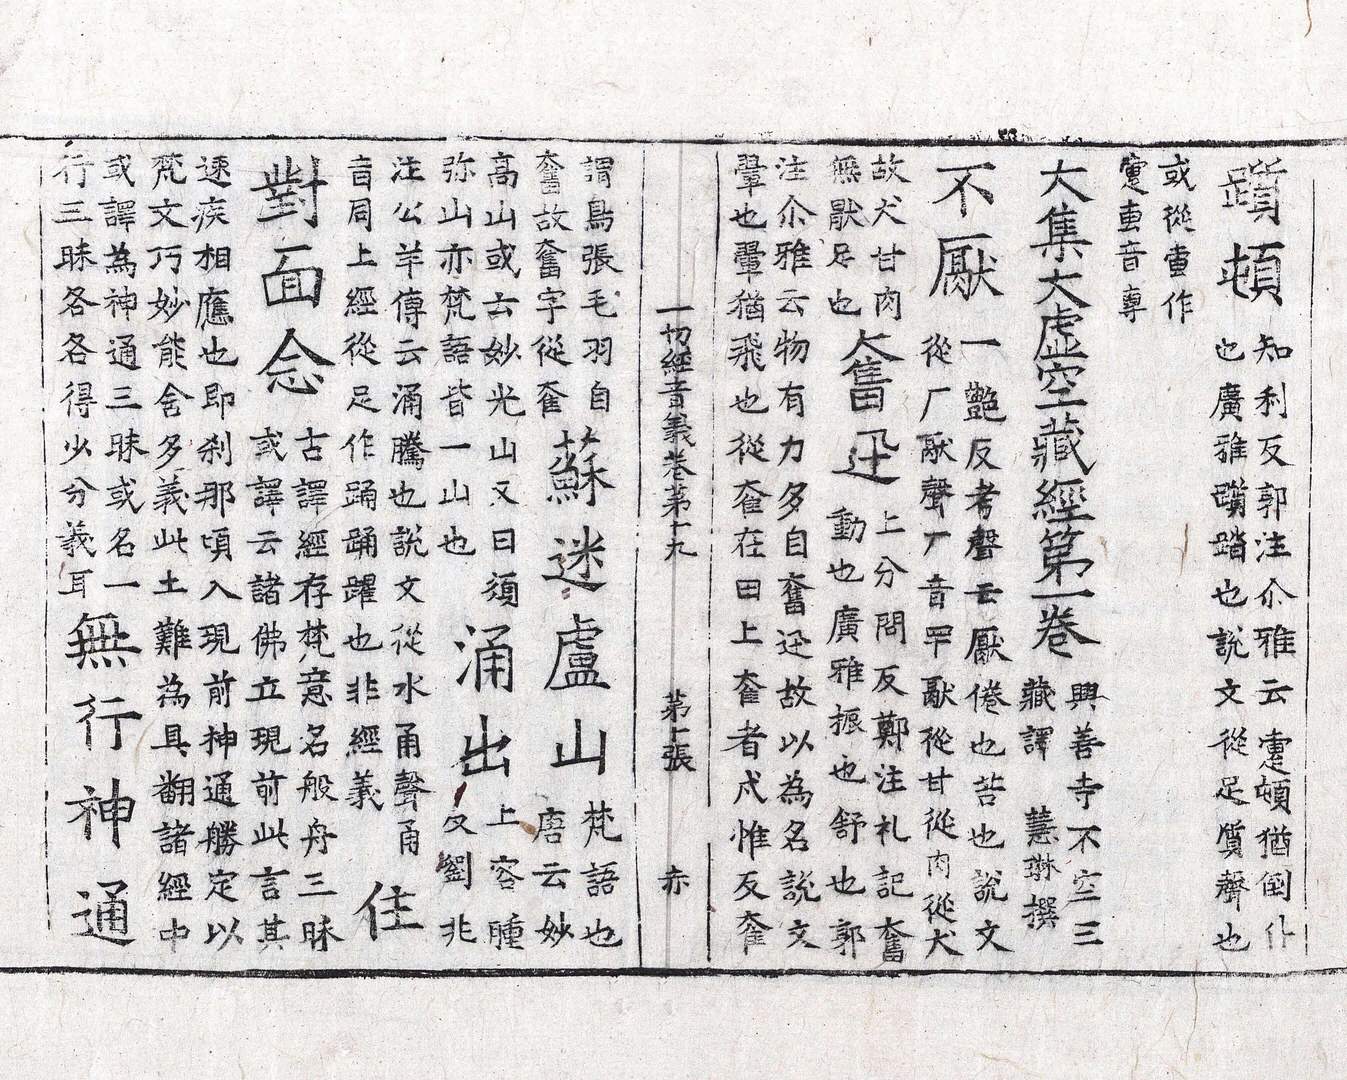 躓頓
知利反郭注尒雅云疐頓猶倒仆
也廣雅躓蹹也說文從足質聲也
或從叀作
疐叀音專
大集大虛空藏經第一卷
興善寺不空三
藏譯 慧琳撰
不厭
一艷反考聲云厭倦也苦也說文
從厂猒聲厂音罕猒從甘從肉從犬
故犬甘肉
無猒足也
奮迅
上分問反鄭注礼記奮
動也廣雅振也舒也郭
注尒雅云物有力多自奮迅故以為名說文
翬也翬猶飛也從奞在田上奞者戌惟反奞
一切經音義卷第十九 第十張 赤
謂鳥張毛羽自
奮故奮字從奞
蘇迷盧山
梵語也
唐云妙
高山或云妙光山又曰須
弥山亦梵語皆一山也
涌出
上容腫
反劉兆
注公羊傳云涌騰也說文從水甬聲甬
音同上經從足作踊踊躍也非經義
住
對面念
古譯經存梵意名般舟三昧
或譯云諸佛立現前此言其
速疾相應也即刹那頃入現前神通勝定以
梵文巧妙能含多義此土難為具翻諸經中
或譯為神通三昧或名一
行三昧各各得少分義耳
無行神通